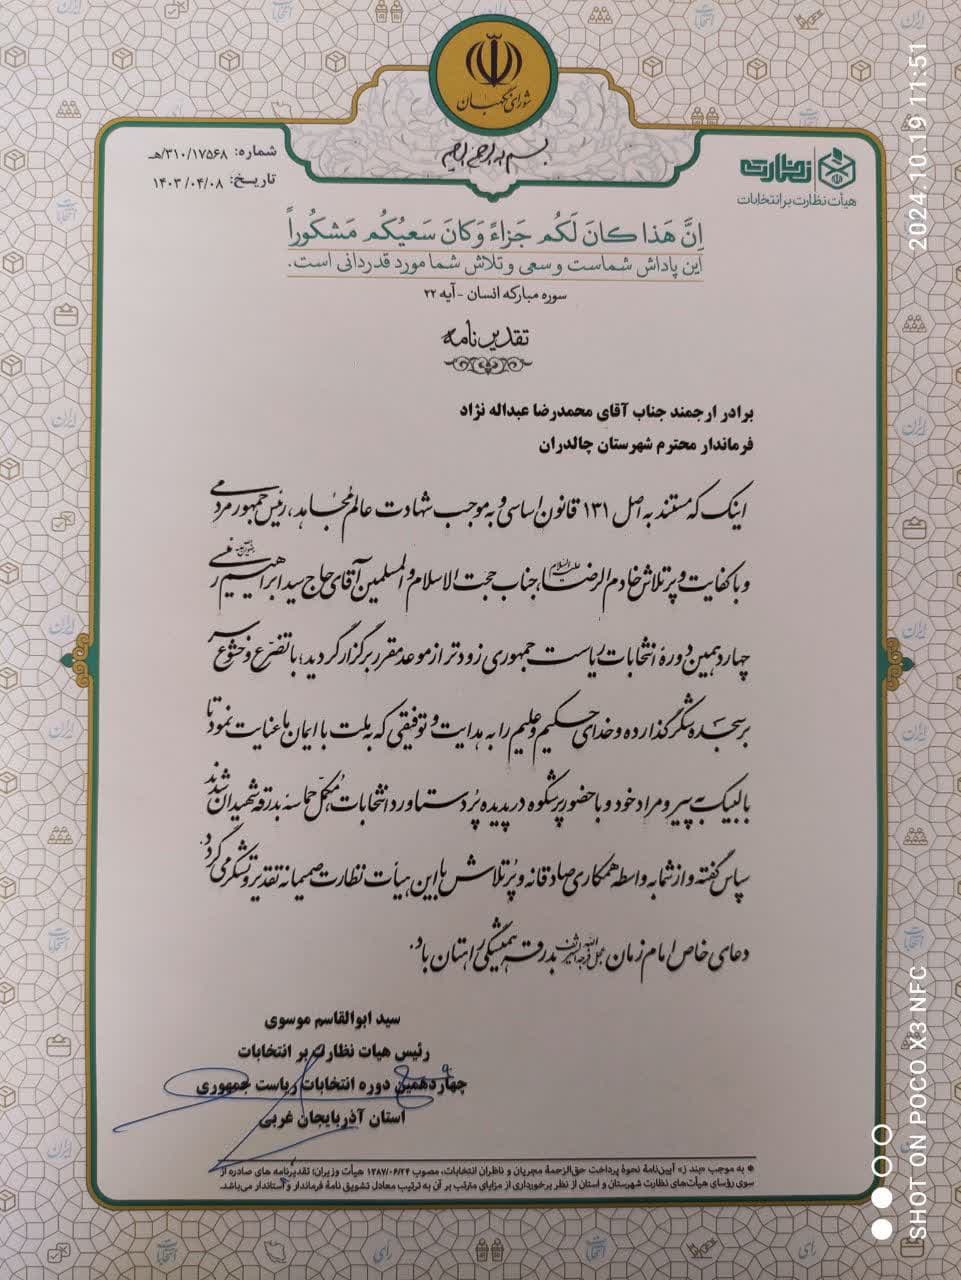 شورای نگهبان
بسم الله الرحمن الرحیم
شماره: ۳۱۰/۱۷۵۶۸/هـ
تاریخ: ۱۴۰۳/۰۴/۰۸
نظارت
هیأت نظارت بر انتخابات
اِنَّ هَذا كانَ لَكُم جَزاءً وَكانَ سَعيُكُم مَشكُوراً
این پاداش شماست و سعی و تلاش شما مورد قدردانی است.
سوره مبارکه انسان - آیه ۲۲
تقدیرنامه
برادر ارجمند جناب آقای محمدرضا عبداله نژاد
فرماندار محترم شهرستان چالدران
اینک که مستند به اصل ۱۳۱ قانون اساسی و به موجب شهادت عالم مُجاهد، رئیس جمهور مردمی
و با کفایت و پرتلاش خادم الرضا علیه السلام، جناب حجت الاسلام والمسلمین آقای حاج سید ابراهیم رئیسی
چهاردهمین دورهٔ انتخابات ریاست جمهوری زودتر از موعد مقرر برگزار گردید؛ با تضرّع و خشوع سر
بر سجده شکر گذارده و خدای حکیم و علیم را به هدایت و توفیقی که به ملت با ایمان ما عنایت نمود تا
با لبیک به پیر و مراد خود و با حضور پرشکوه در پدیده پُر دستاورد انتخابات، مُکمّل حماسهٔ بدرقه شهیدان شدند
سپاس گفته و از شما به واسطه همکاری صادقانه و پُرتلاش با این هیأت نظارت صمیمانه تقدیر و تشکر می گردد.
دعای خاص امام زمان عجل الله فرجه الشریف بدرقه همیشگی راهتان باد.
سید ابوالقاسم موسوی
رئیس هیات نظارت بر انتخابات
چهاردهمین دوره انتخابات ریاست جمهوری
استان آذربایجان غربی
* به موجب «بند ز» آیین‌نامهٔ نحوهٔ پرداخت حق‌الزحمهٔ مجریان و ناظران انتخابات، مصوب ۱۳۸۷/۰۶/۲۴ هیأت وزیران؛ تقدیرنامه های صادره از
سوی رؤسای هیأت‌های نظارت شهرستان و استان از نظر برخورداری از مزایای مترتب بر آن به ترتیب معادل تشویق نامهٔ فرماندار و استاندار می‌باشد.
2024.10.19 11:51
SHOT ON POCO X3 NFC